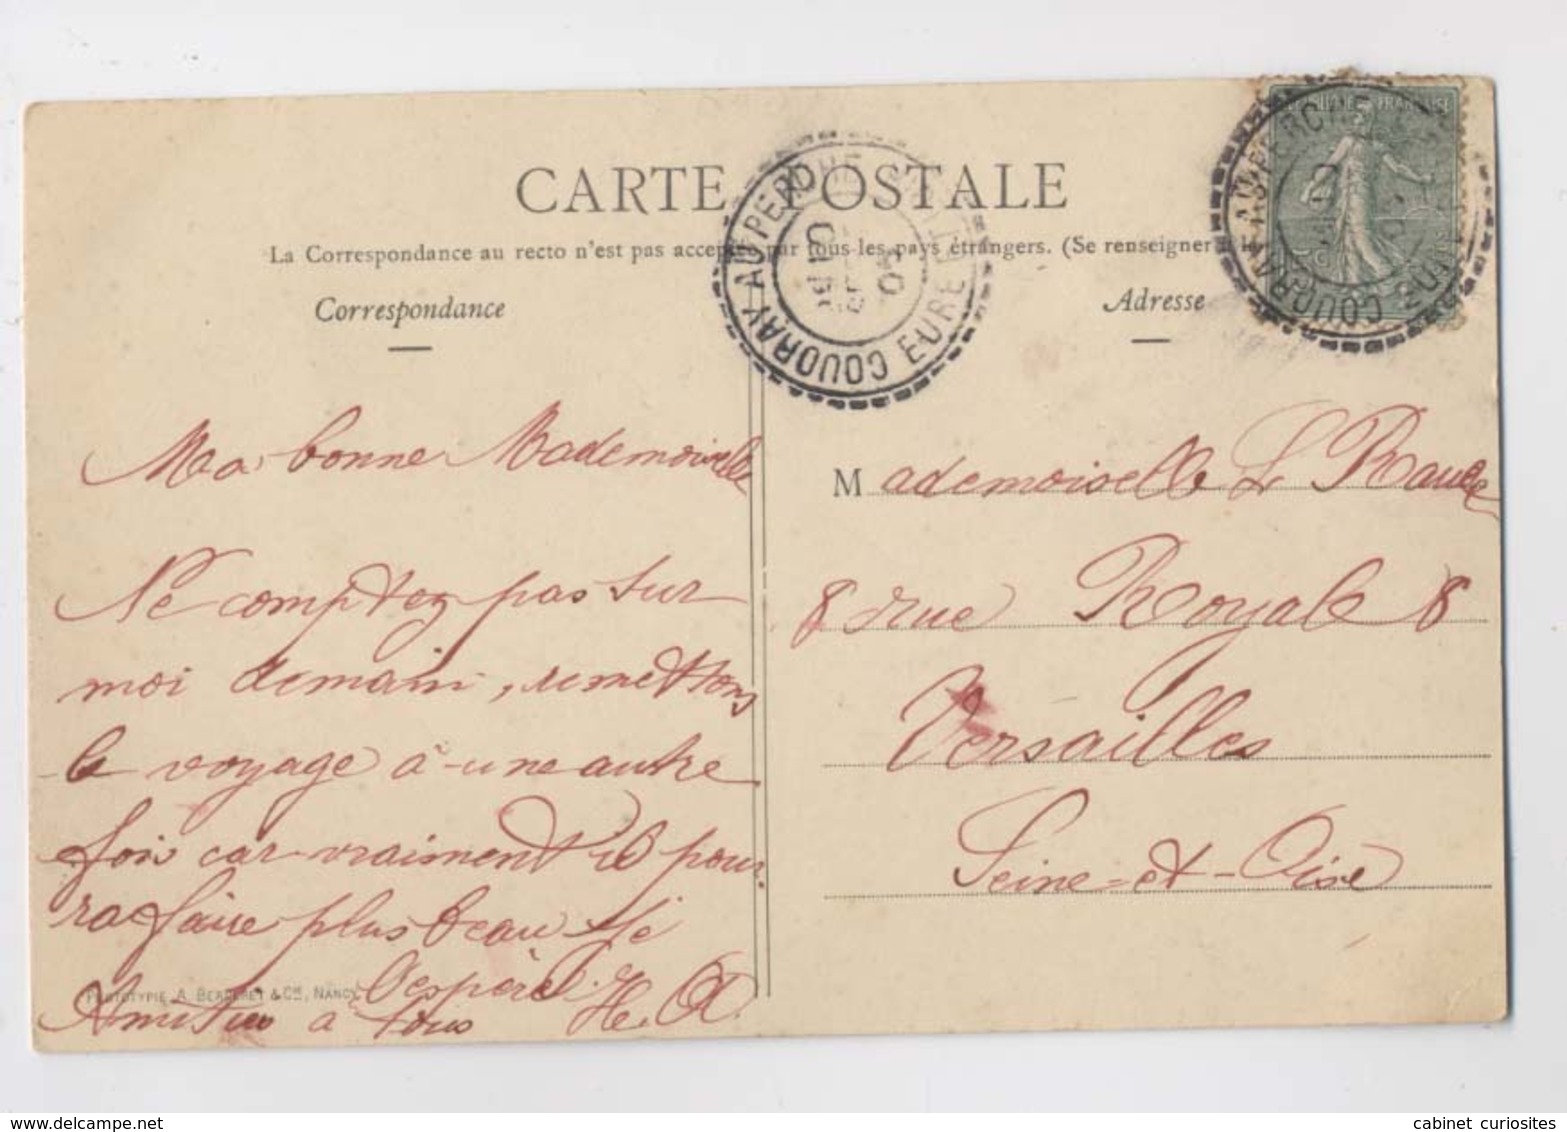 CARTE POSTALE
La Correspondance au recto n'est pas acceptée par tous les pays étrangers. (Se renseigner
Correspondance
Adresse
COUDRAY AU PERCHE
EURE ET
RÉPUBLIQUE FRANÇAISE
COUDRAY AU PERCHE
Ma bonne Mademoiselle
Ne comptez pas sur
moi demain, remettons
le voyage à une autre
fois car vraiment il pour
ra faire plus beau je
l'espère.
Amitiés à tous
PHOTOTYPIE A. BERGERET & Cie, NANCY
Mademoiselle Le
8 rue Royale 8
Versailles
Seine-et-Oise
cabinet curiosites